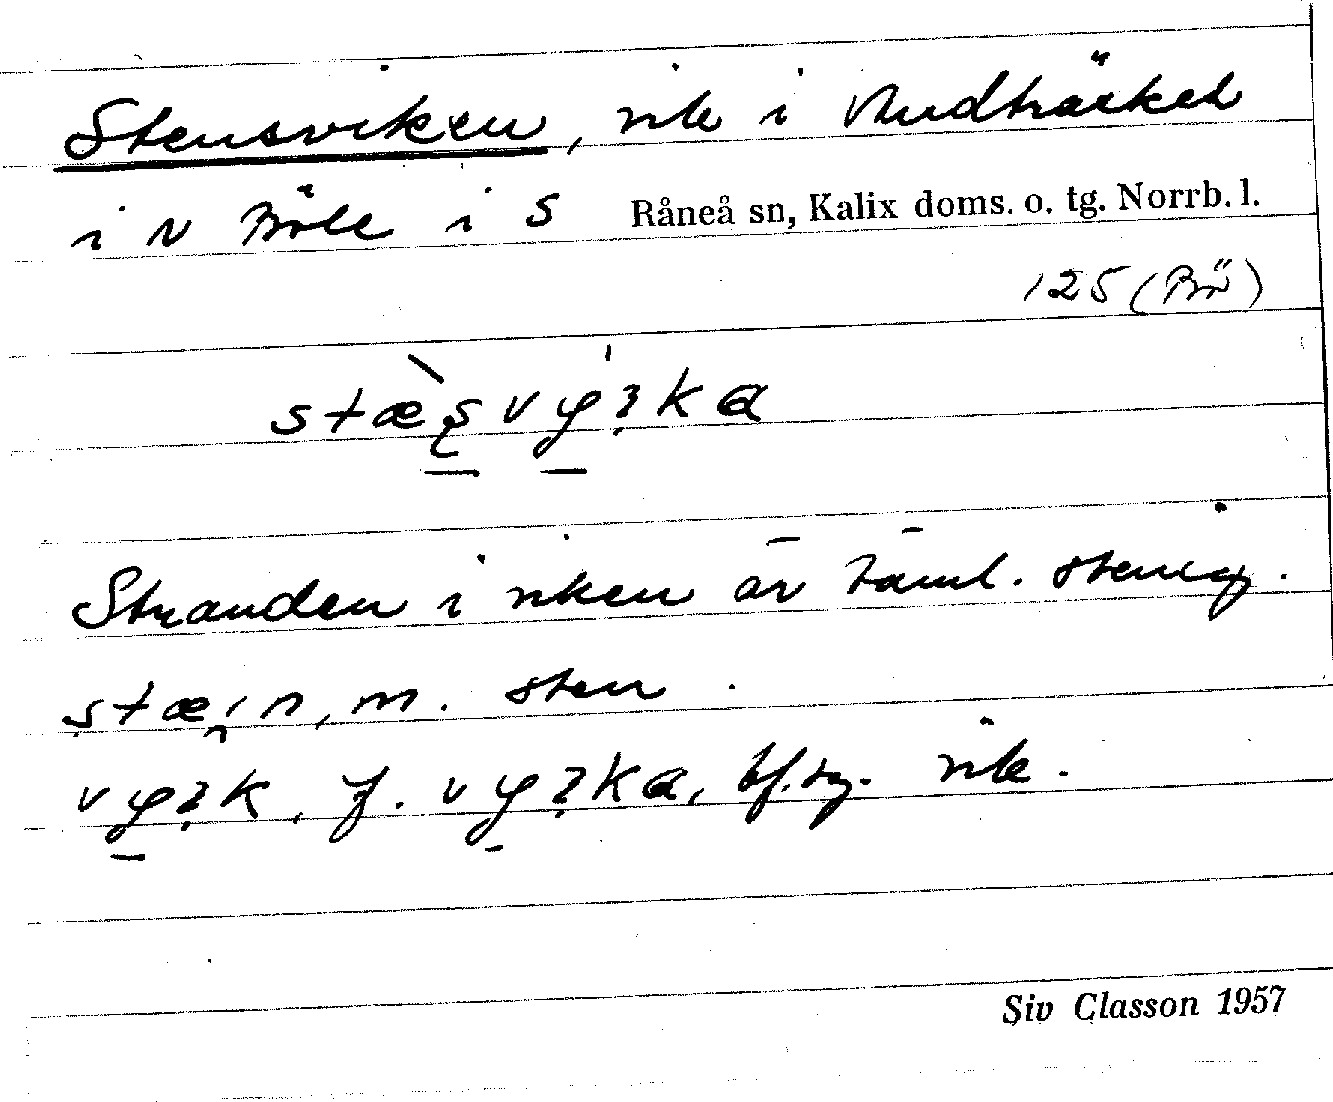 Stensviken, vik i Rudträsket
i N Böle i S Råneå sn, Kalix doms. o. tg. Norrb. l.
125 (Bö)
Stranden i viken är täml. stenig.
m. sten.
f. bf.sg. vik.
Siv Classon 1957